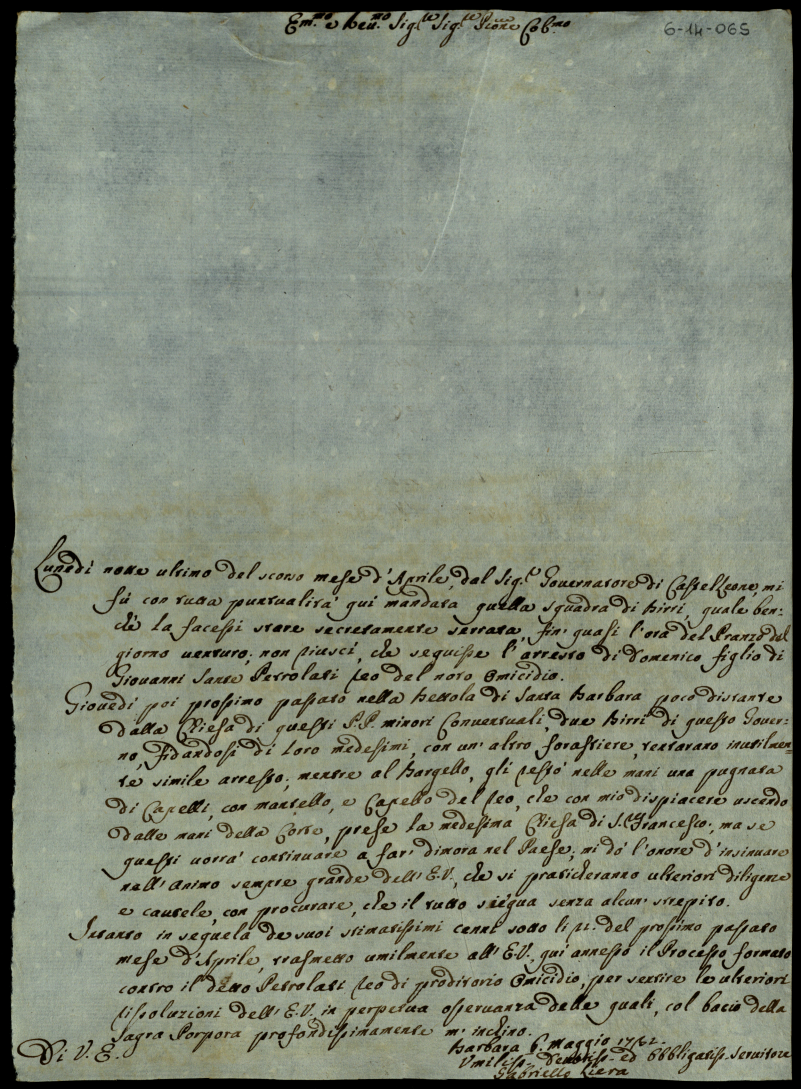 Em.mo e Reu.mo Sig.re Sig.re Pron̄e Col̄mo
6-14-065
Lunedì notte ultimo del scorso mese d'Aprile, dal Sig.r Gouernatore di CastelLeone, mi
fù con tutta puntualità qui mandata quella squadra di birri, quale ben=
chè la facessi stare secretamente serrata, fin' quasi l'ora del Pranzo del
giorno uenturo; non riuscì, che seguisse l'arresto di Domenico figlio di
Giouanni Sante Petrolati reo del noto Omicidio.
Giouedì poi prossimo passato nella bettola di Santa barbara poco distante
dalla Chiesa di questi P.P. minori Conuentuali, due birri di questo Gouer=
no, fidandosi di loro medesimi, con un' altro forastiere, tentarano inutilmen=
te simile arresto; mentre al bargello, gli restò nelle mani una pugnata
di Capelli, con mantello, e Capello del reo, che con mio dispiacere uscendo
dalle mani della Corte, prese la medesima Chiesa di S. Francesco; ma se
questi uorrà continuare a far' dimora nel Paese, mi dò l'onore d'insinuare
nell' animo sempre grande dell' E.V., che si praticheranno ulteriori diligenze
e cautele, con procurare, che il tutto siegua senza alcun' strepito.
Intanto in sequela de suoi stimatissimi cenni sotto li 21. del prossimo passato
mese d'Aprile, trasmetto umilmente all' E.V., quì annesso il Processo formato
contro il detto Petrolati reo di proditorio Omicidio, per sentire le ulteriori
rissoluzioni dell' E.V. in perpetua osseruanza delle quali, col bacio della
sagra Porpora profondissimamente m' inchino.
Di V. E.
barbara 6. maggio 1762.
Vmiliss.o Deuotiss.o ed Obbligatiss. Seruitore
Gabriello